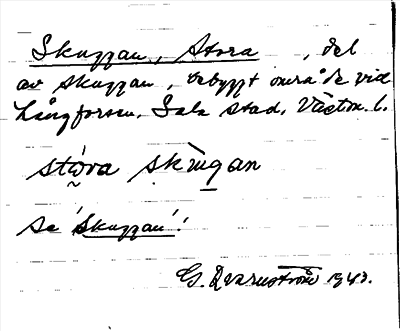 Skuggan, Stora, del
av Skuggan, bebyggt område vid
Långforsen. Sala stad, Västm. l.
stώra skùgan
se 'Skuggan'!
G. Qvarnström 1943.